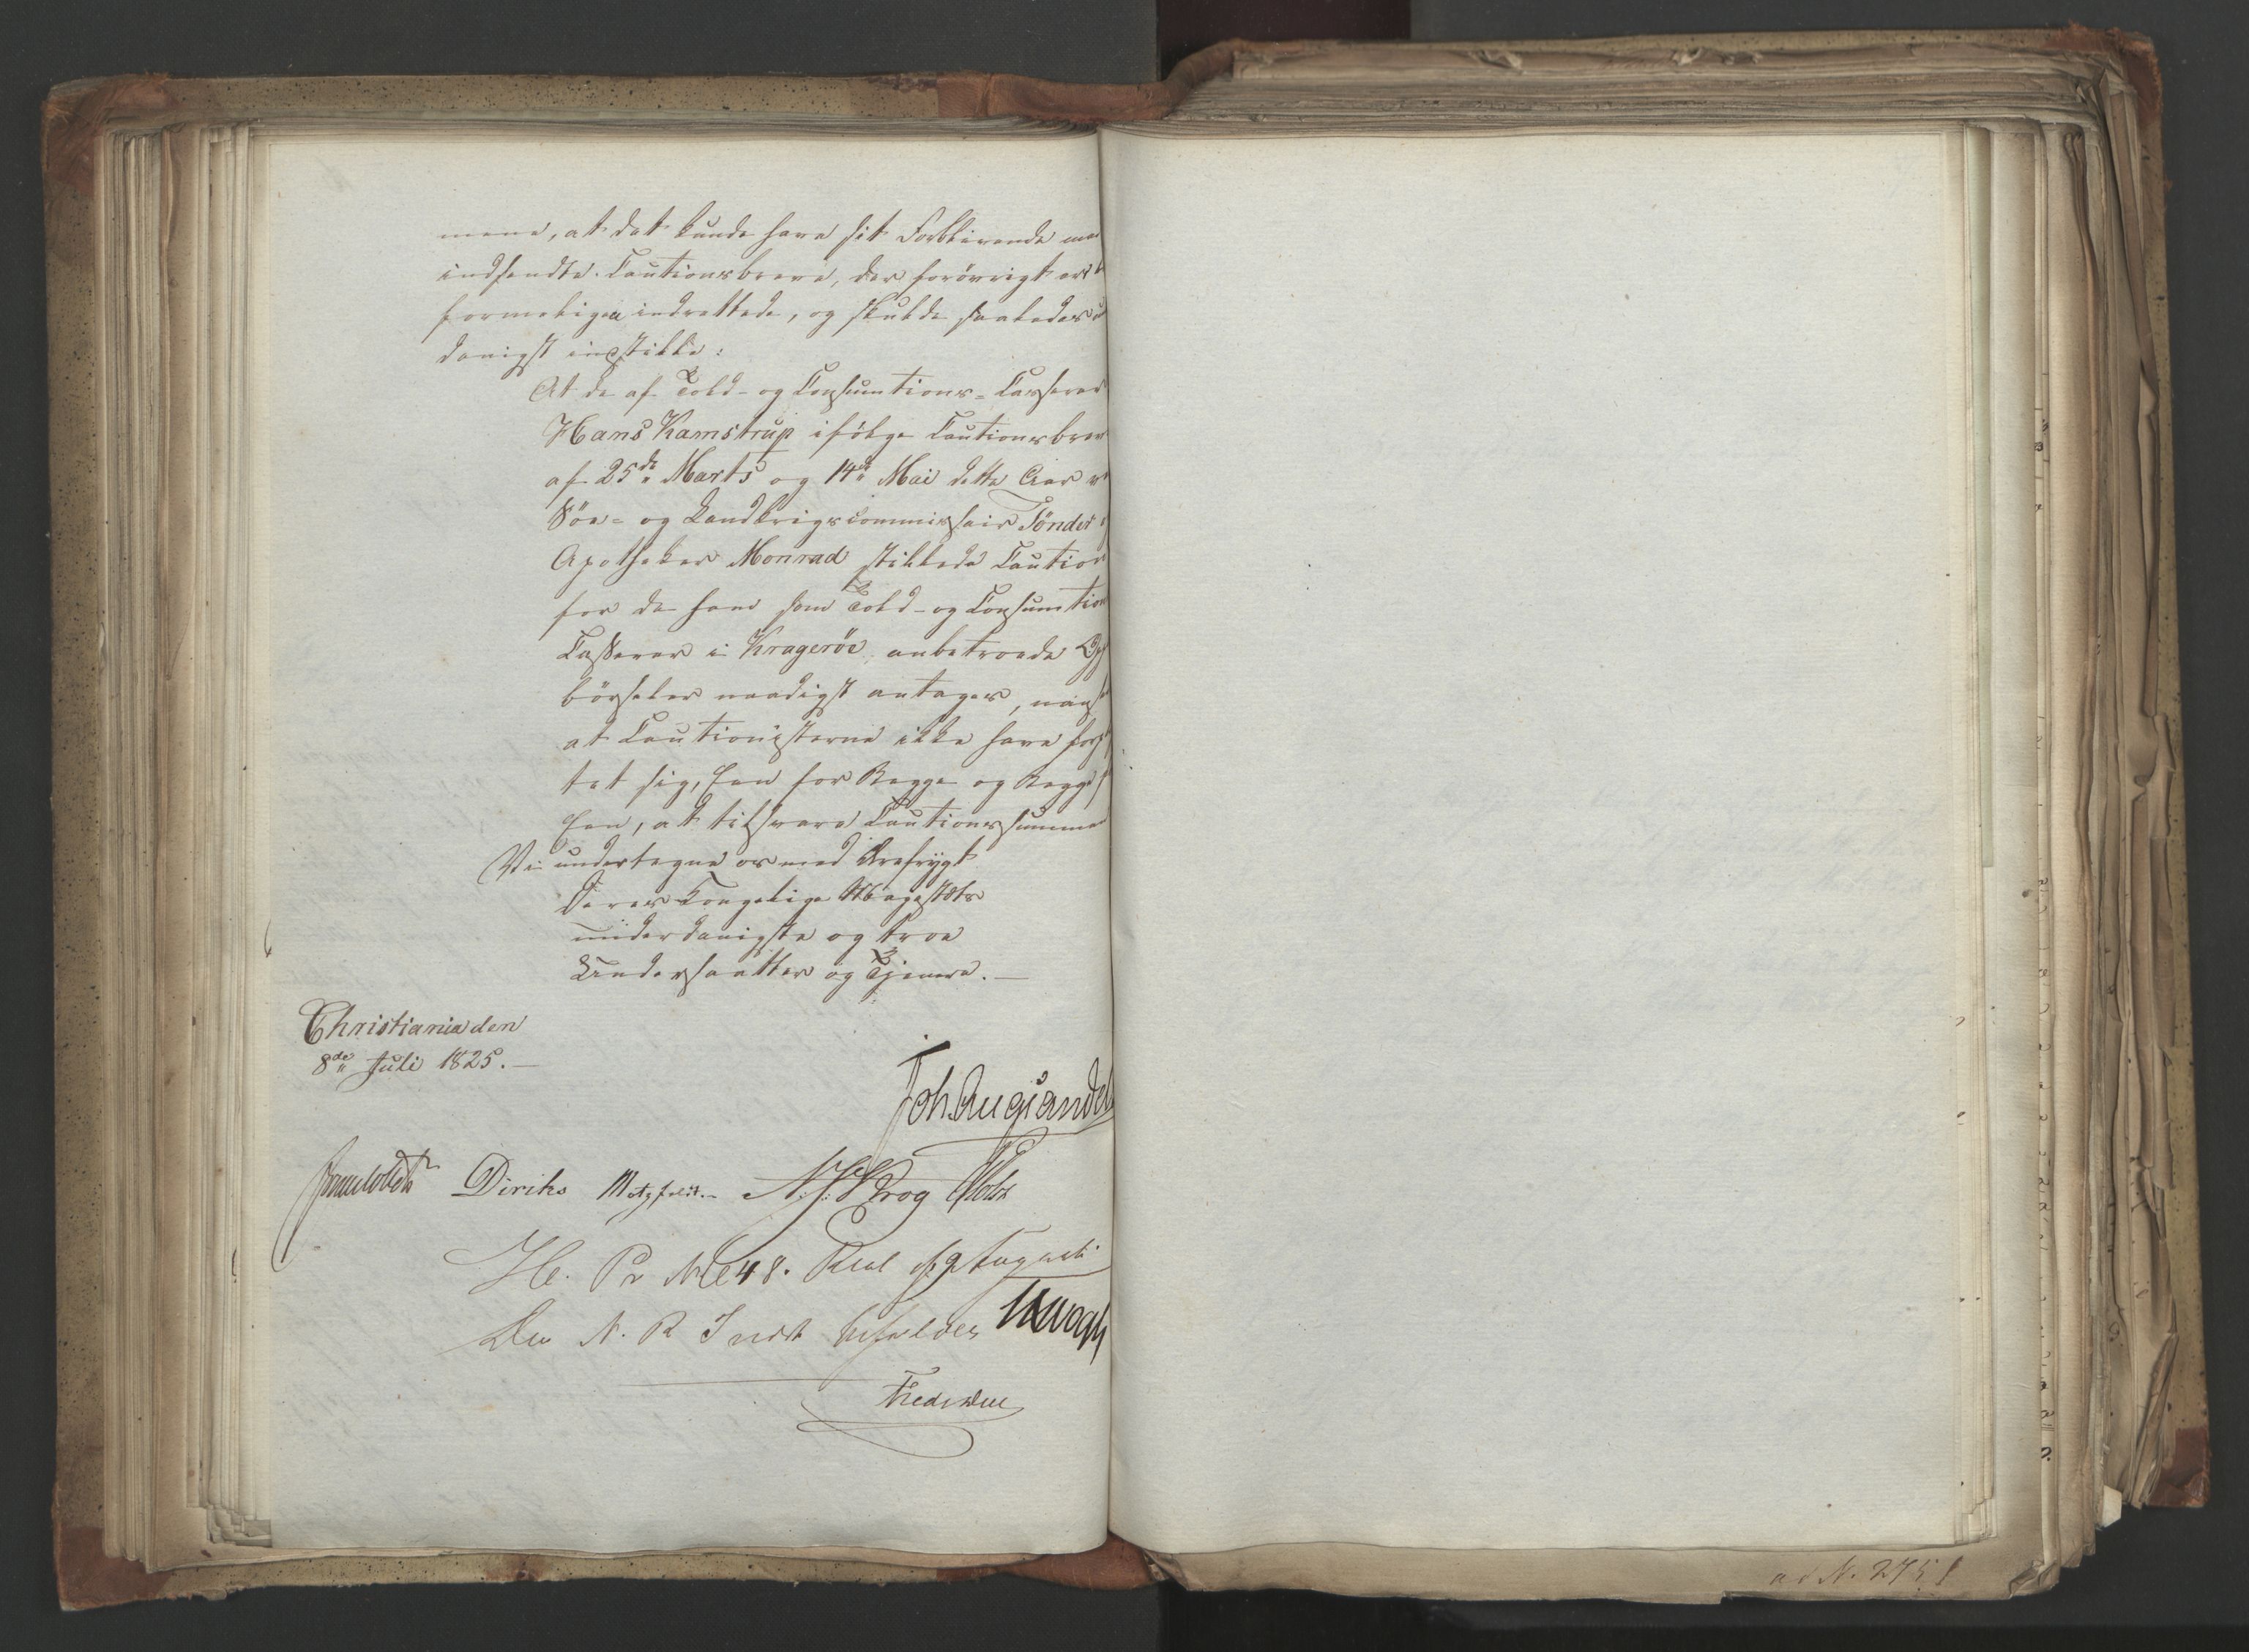 mene, at det kunde have sit Forblivende med
indsendte Cautionsbreve, der forövrigt ere
formeligen indrettede, og skulde saaledes
danigst indstille:
At de af Told- og Consumtions-Casserer
Hans Kamstrup ifölge Cautionsbrev
af 25de Marts og 14de Mai dette Aar
Söe- og Landkrigscommissair Tönder
Apotheker Monrad stillede Caution
for de ham som Told- og Consumtions
Casserer i Krageröe anbetroede Op
börseler naadigst antages, uanseet
at Cautionisterne ikke have forplig
tet sig, Een for Begge og Begge for
Een, at tilsvare Cautionssummen
Vi undertegne os med Ærefrygt
Deres Kongelige Majestæts
underdanigste og troe
Undersaatter og Tjenere. —
Christiania den
8de Juli 1825. —
Joh. Aug. Sandels
Diriks Motzfeldt. N. J. Krog Holst
Den N. R. Indst. bifaldes
Fred. Due
ad N. 2751